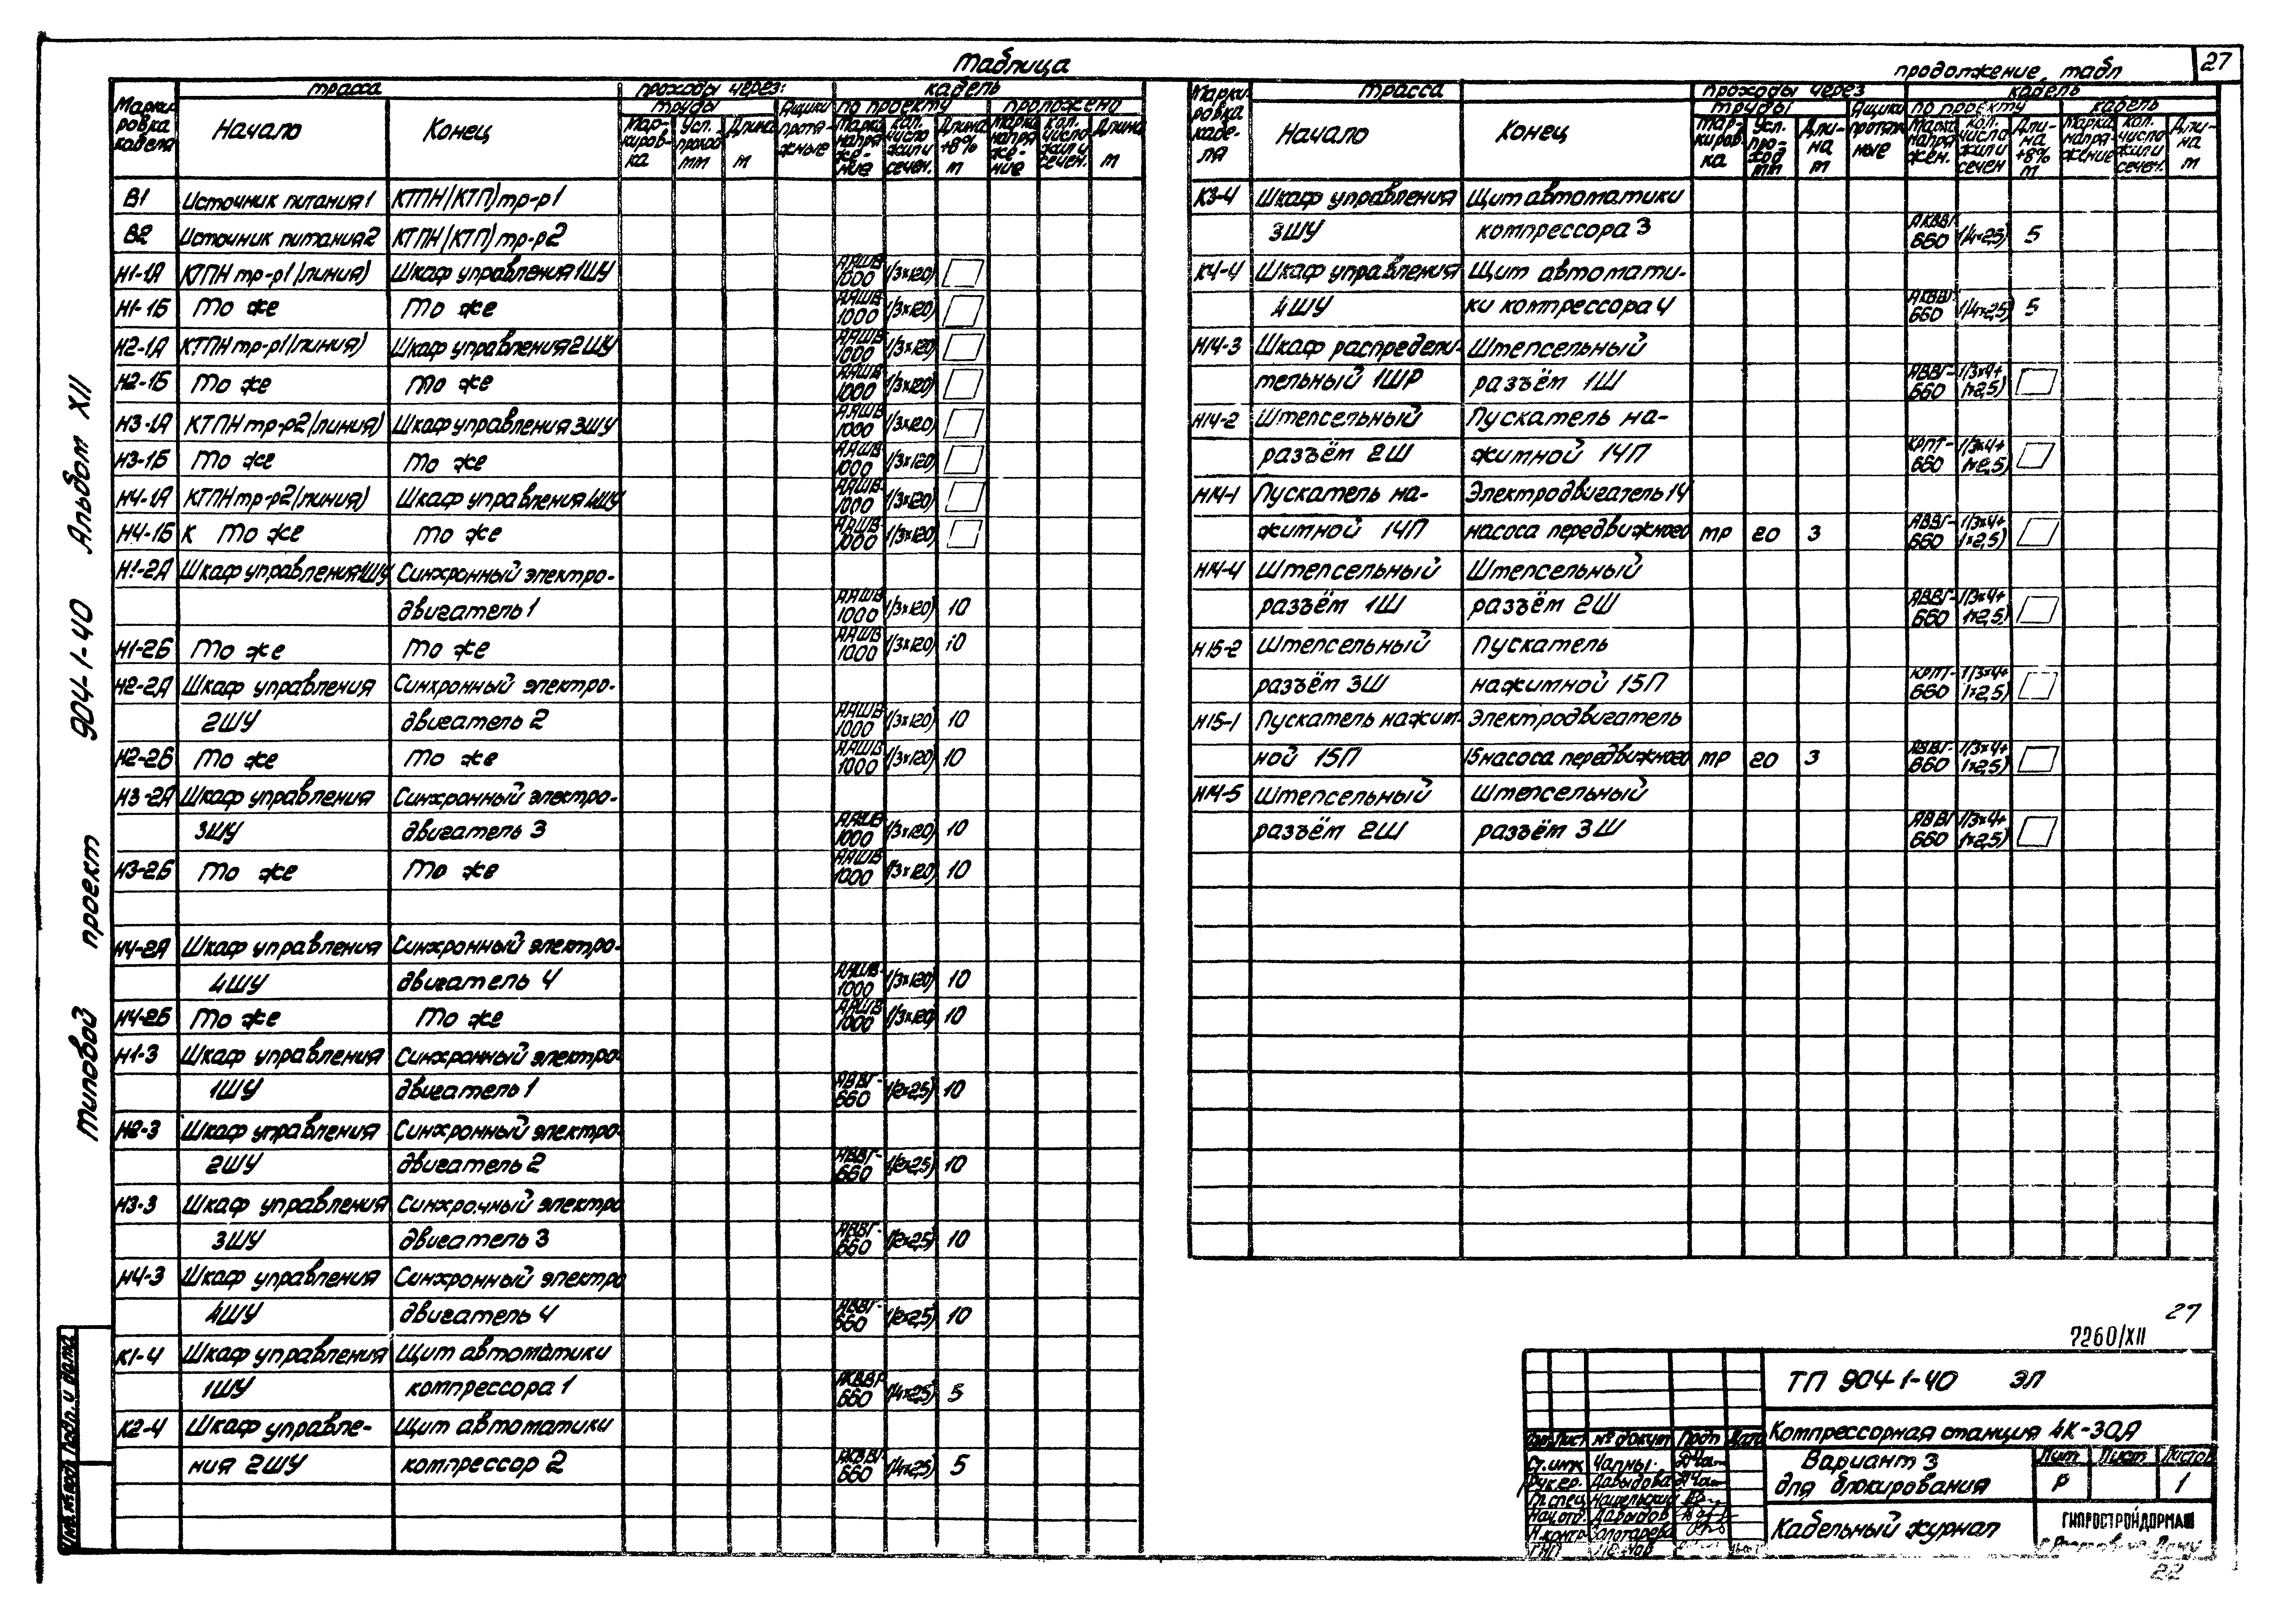 Таблица
Типовой проект 904-1-40 Альбом XII
Маркировка кабеля
трасса
Начало
Конец
проходы через:
трубы
Маркировка
Усл. проход mm
Длина м
Ящики протяжные
кабель
по проекту
Марка напряжение
Кол. число жил и сечен.
Длина +8% м
проложено
Марка напряжение
Кол. число жил и сечен.
Длина м
В1 Источник питания 1 КТПН/(КТП) тр-р1
В2 Источник питания 2 КТПН/(КТП) тр-р2
Н1-1А КТПН тр-р1 (линия) Шкаф управления 1ШУ ААШВ 1000 1(3×120)
Н1-1Б То же То же ААШВ 1000 1(3×120)
Н2-1А КТПН тр-р1 (линия) Шкаф управления 2ШУ ААШВ 1000 1(3×120)
Н2-1Б То же То же ААШВ 1000 1(3×120)
Н3-1А КТПН тр-р2 (линия) Шкаф управления 3ШУ ААШВ 1000 1(3×120)
Н3-1Б То же То же ААШВ 1000 1(3×120)
Н4-1А КТПН тр-р2 (линия) Шкаф управления 4ШУ ААШВ 1000 1(3×120)
Н4-1Б К То же То же ААШВ 1000 1(3×120)
Н1-2А Шкаф управления 1ШУ Синхронный электро-
двигатель 1 ААШВ 1000 1(3×120) 10
Н1-2Б То же То же ААШВ 1000 1(3×120) 10
Н2-2А Шкаф управления Синхронный электро-
2ШУ двигатель 2 ААШВ 1000 1(3×120) 10
Н2-2Б То же То же ААШВ 1000 1(3×120) 10
Н3-2А Шкаф управления Синхронный электро-
3ШУ двигатель 3 ААШВ 1000 1(3×120) 10
Н3-2Б То же То же ААШВ 1000 1(3×120) 10
Н4-2А Шкаф управления Синхронный электро-
4ШУ двигатель 4 ААШВ 1000 1(3×120) 10
Н4-2Б То же То же ААШВ 1000 1(3×120) 10
Н1-3 Шкаф управления Синхронный электро-
1ШУ двигатель 1 АВВГ-660 1(2×2,5) 10
Н2-3 Шкаф управления Синхронный электро-
2ШУ двигатель 2 АВВГ-660 1(2×2,5) 10
Н3-3 Шкаф управления Синхронный электро
3ШУ двигатель 3 АВВГ-660 1(2×2,5) 10
Н4-3 Шкаф управления Синхронный электро
4ШУ двигатель 4 АВВГ-660 1(2×2,5) 10
К1-4 Шкаф управления Щит автоматики
1ШУ компрессора 1 АКВВГ 660 1(4×2,5) 5
К2-4 Шкаф управле- Щит автоматики
ния 2ШУ компрессор 2 АКВВГ 660 1(4×2,5) 5
продолжение табл
27
Маркировка кабеля
трасса
Начало
Конец
проходы через
трубы
Маркировка
Усл. проход mm
Длина м
Ящики протяжные
кабель
по проекту
Марка напряжен.
Кол. число жил и сечен
Длина +8% м
кабель
Марка напряжение
Кол. число жил и сечен.
Длина м
К3-4 Шкаф управления Щит автоматики
3ШУ компрессора 3 АКВВГ 660 1(4×2,5) 5
К4-4 Шкаф управления Щит автомати-
4ШУ ки компрессора 4 АКВВГ 660 1(4×2,5) 5
Н14-3 Шкаф распредели- Штепсельный
тельный 1ШР разъём 1Ш АВВГ-660 1(3×4+1×2,5)
Н14-2 Штепсельный Пускатель на-
разъём 2Ш жимной 14П КРПТ-660 1(3×4+1×2,5)
Н14-1 Пускатель на- Электродвигатель 14
жимной 14П насоса передвижного тр 20 3 АВВГ-660 1(3×4+1×2,5)
Н14-4 Штепсельный Штепсельный
разъём 1Ш разъём 2Ш АВВГ-660 1(3×4+1×2,5)
Н15-2 Штепсельный Пускатель
разъём 3Ш нажимной 15П КРПТ-660 1(3×4+1×2,5)
Н15-1 Пускатель нажим- Электродвигатель
ной 15П 15 насоса передвижного тр 20 3 АВВГ-660 1(3×4+1×2,5)
Н14-5 Штепсельный Штепсельный
разъём 2Ш разъём 3Ш АВВГ 660 1(3×4+1×2,5)
27
7260/XII
ТП 904-1-40 ЭЛ
Компрессорная станция 4К-30А
Вариант 3
для блокирования
Лит. Лист Листов
Р 1
Кабельный журнал
ГИПРОСТРОЙДОРМАШ
Изм Лист № докум Подп Дата
Ст.инж
Рук.гр. Давыдова
Гл.спец
Нач.отд. Давыдов
Н.контр Золотарева
ГИП
22
Инв.№ подл Подп. и дата